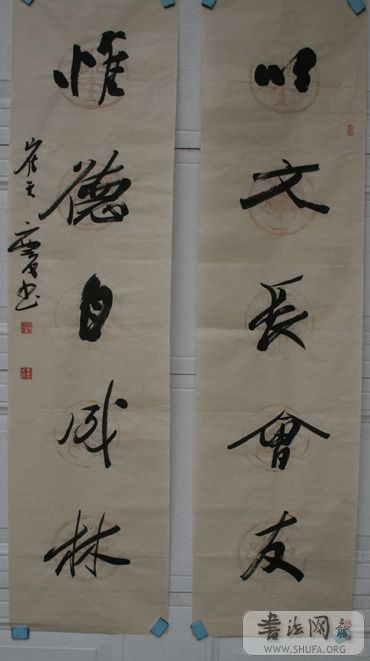 以文長會友
惟德自成林
崔天慶书
書法网
WWW.SHUFA.ORG